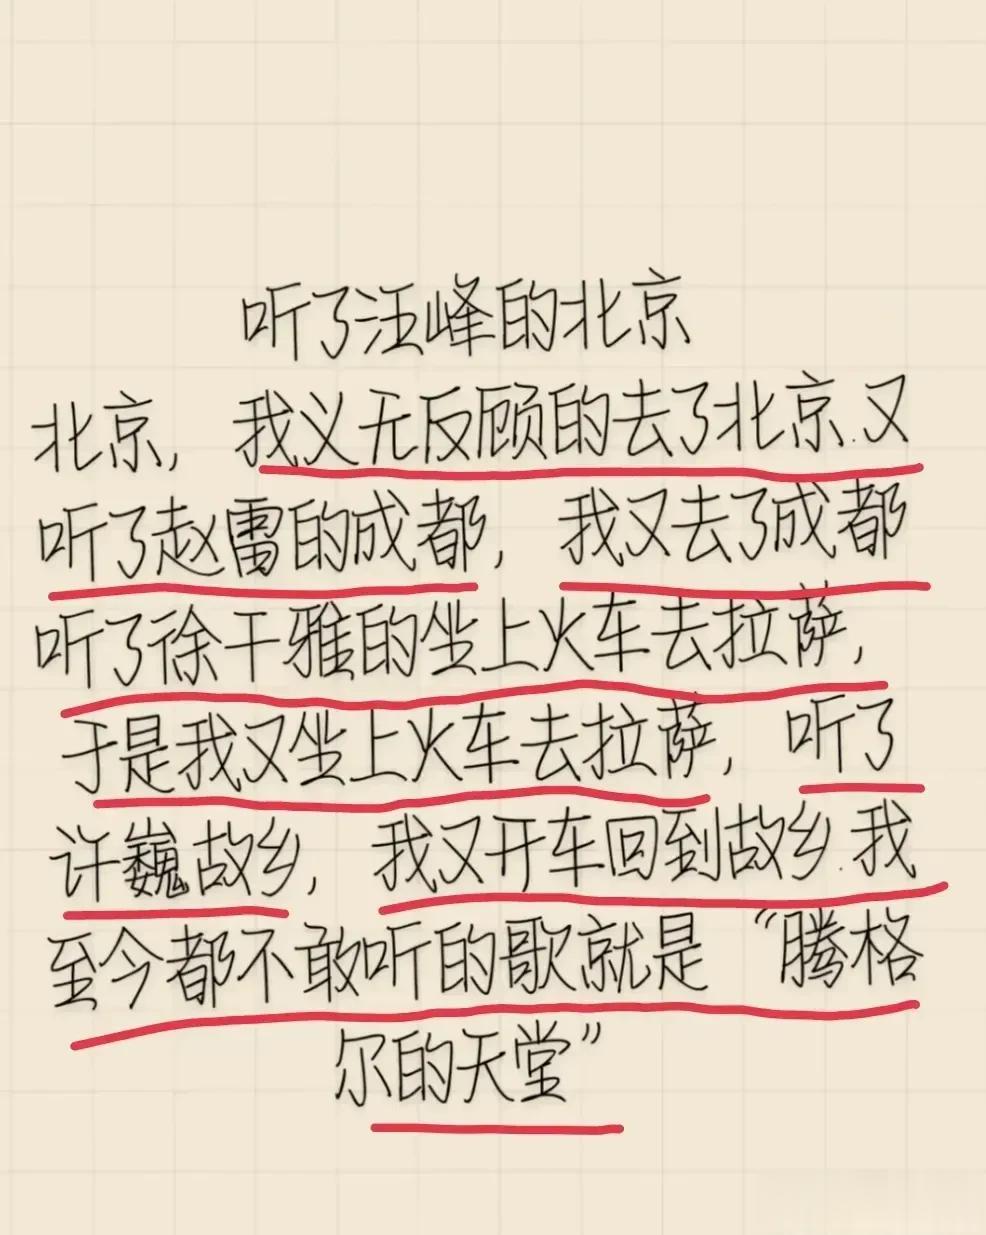 听了汪峰的北京
北京, 我义无反顾的去了北京.又
听了赵雷的成都, 我又去了成都
听了徐干雅的坐上火车去拉萨,
于是我又坐上火车去拉萨, 听了
许巍故乡, 我又开车回到故乡.我
至今都不敢听的歌就是 “腾格
尔的天堂”